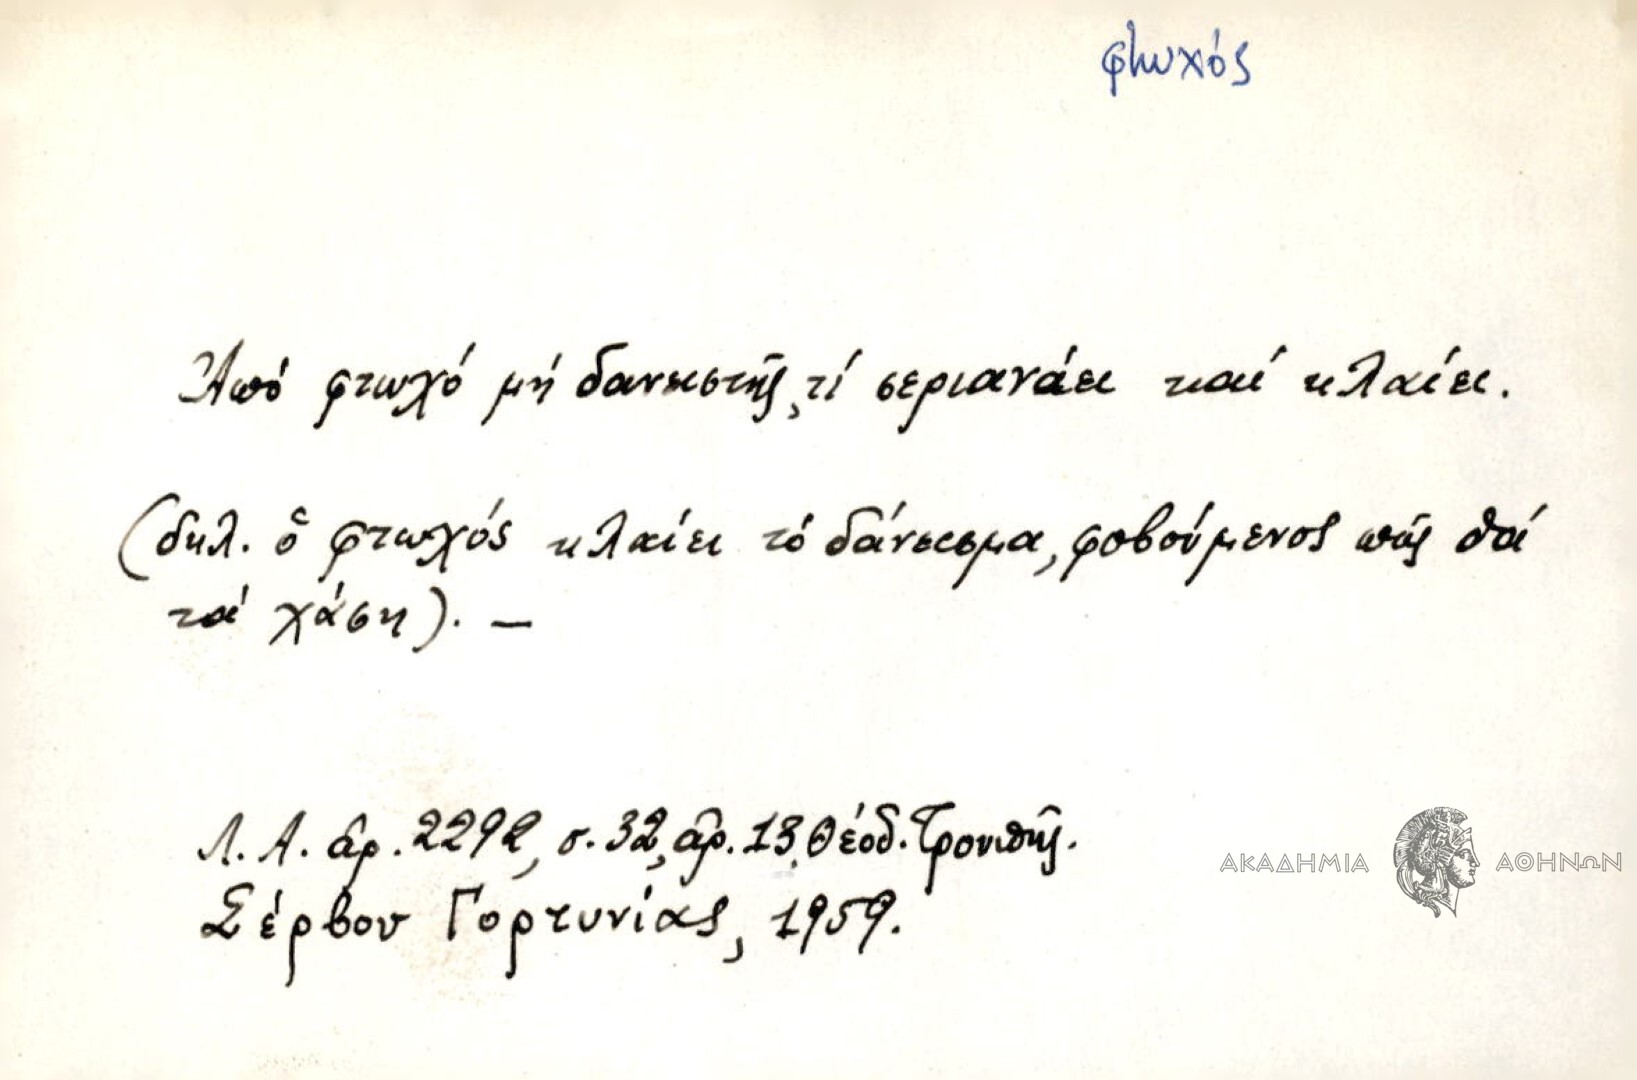 φτωχός
Ἀπό φτωχό μή δανειστῆς, τί σεριανάει καί κλαίει.
(δηλ. ὁ φτωχός κλαίει τό δάνεισμα, φοβούμενος πῶς θά
τά χάση). —
Λ. Α. ἀρ. 2292, σ. 32, ἀρ. 13, Θεόδ.
Σέρβου Γορτυνίας, 1959.
ΑΚΑΔΗΜΙΑ ΑΘΗΝΩΝ